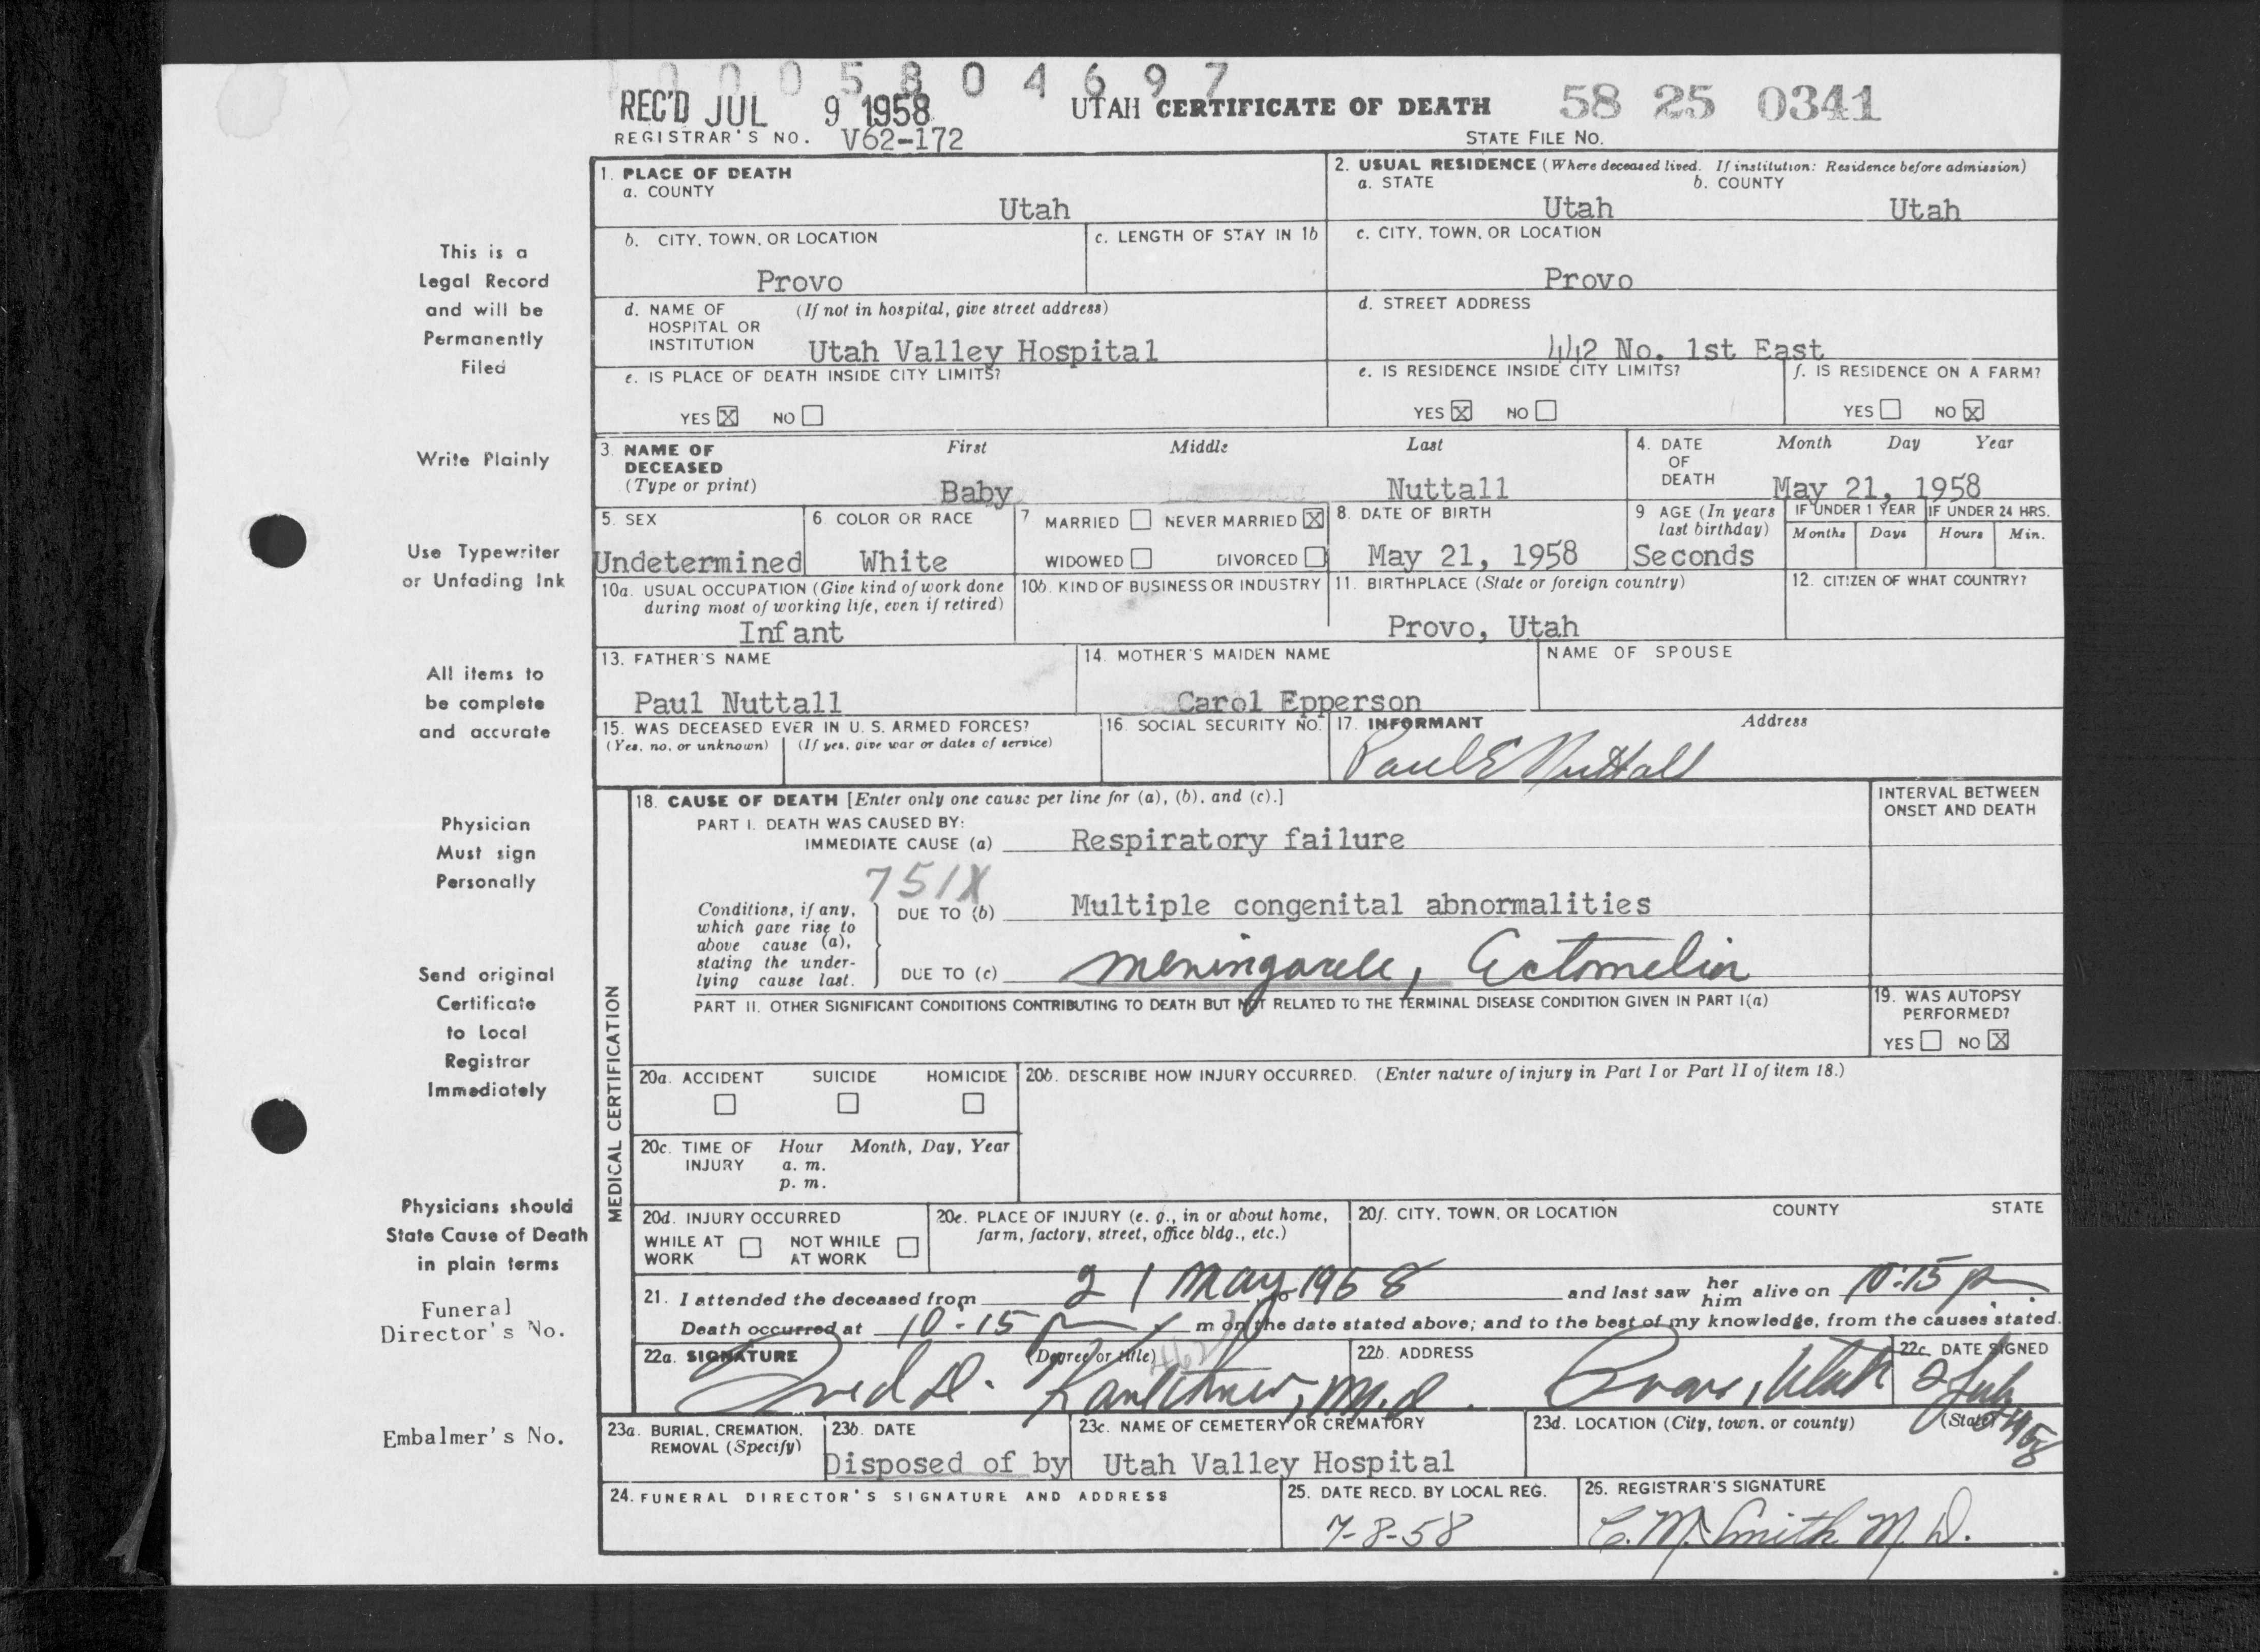 0005804697
REC'D JUL 9 1958 UTAH CERTIFICATE OF DEATH 58 25 0341
REGISTRAR'S NO. V62-172 STATE FILE NO.
This is a
Legal Record
and will be
Permanently
Filed
Write Plainly
Use Typewriter
or Unfading Ink
All items to
be complete
and accurate
Physician
Must sign
Personally
Send original
Certificate
to Local
Registrar
Immediately
Physicians should
State Cause of Death
in plain terms
Funeral
Director's No.
Embalmer's No.
1. PLACE OF DEATH
a. COUNTY
Utah
2. USUAL RESIDENCE (Where deceased lived. If institution: Residence before admission)
a. STATE b. COUNTY
Utah Utah
b. CITY, TOWN, OR LOCATION
Provo
c. LENGTH OF STAY IN 1b
c. CITY, TOWN, OR LOCATION
Provo
d. NAME OF (If not in hospital, give street address)
HOSPITAL OR
INSTITUTION Utah Valley Hospital
d. STREET ADDRESS
442 No. 1st East
e. IS PLACE OF DEATH INSIDE CITY LIMITS?
YES X NO
e. IS RESIDENCE INSIDE CITY LIMITS?
YES X NO
f. IS RESIDENCE ON A FARM?
YES NO X
3. NAME OF First Middle Last
DECEASED
(Type or print) Baby Nuttall
4. DATE Month Day Year
OF
DEATH May 21, 1958
5. SEX
Undetermined
6. COLOR OR RACE
White
7 MARRIED NEVER MARRIED X
WIDOWED DIVORCED
8. DATE OF BIRTH
May 21, 1958
9 AGE (In years
last birthday)
Seconds
IF UNDER 1 YEAR IF UNDER 24 HRS.
Months Days Hours Min.
10a. USUAL OCCUPATION (Give kind of work done
during most of working life, even if retired)
Infant
10b. KIND OF BUSINESS OR INDUSTRY
11. BIRTHPLACE (State or foreign country)
Provo, Utah
12. CITIZEN OF WHAT COUNTRY?
13. FATHER'S NAME
Paul Nuttall
14. MOTHER'S MAIDEN NAME
Carol Epperson
NAME OF SPOUSE
15. WAS DECEASED EVER IN U. S. ARMED FORCES?
(Yes, no, or unknown) (If yes, give war or dates of service)
16. SOCIAL SECURITY NO.
17. INFORMANT Address
Paul E Nuttall
MEDICAL CERTIFICATION
18. CAUSE OF DEATH [Enter only one cause per line for (a), (b), and (c).]
INTERVAL BETWEEN
ONSET AND DEATH
PART I. DEATH WAS CAUSED BY:
IMMEDIATE CAUSE (a) Respiratory failure
751X
Conditions, if any,
which gave rise to
above cause (a),
stating the under-
lying cause last.
DUE TO (b) Multiple congenital abnormalities
DUE TO (c) meningocele, Ectomelia
PART II. OTHER SIGNIFICANT CONDITIONS CONTRIBUTING TO DEATH BUT NOT RELATED TO THE TERMINAL DISEASE CONDITION GIVEN IN PART I(a)
19. WAS AUTOPSY
PERFORMED?
YES NO X
20a. ACCIDENT SUICIDE HOMICIDE
20b. DESCRIBE HOW INJURY OCCURRED. (Enter nature of injury in Part I or Part II of item 18.)
20c. TIME OF Hour Month, Day, Year
INJURY a. m.
p. m.
20d. INJURY OCCURRED
WHILE AT NOT WHILE
WORK AT WORK
20e. PLACE OF INJURY (e. g., in or about home,
farm, factory, street, office bldg., etc.)
20f. CITY, TOWN, OR LOCATION COUNTY STATE
21. I attended the deceased from 21 May 1958 and last saw her him alive on 10:15 p
Death occurred at 10-15 p m on the date stated above; and to the best of my knowledge, from the causes stated.
22a. SIGNATURE (Degree or title)
Fred D. M.D.
22b. ADDRESS
Provo, Utah
22c. DATE SIGNED
2 July 1958
23a. BURIAL, CREMATION,
REMOVAL (Specify)
23b. DATE
Disposed of by
23c. NAME OF CEMETERY OR CREMATORY
Utah Valley Hospital
23d. LOCATION (City, town, or county) (State)
24. FUNERAL DIRECTOR'S SIGNATURE AND ADDRESS
25. DATE RECD. BY LOCAL REG.
7-8-58
26. REGISTRAR'S SIGNATURE
C. M. Smith M. D.